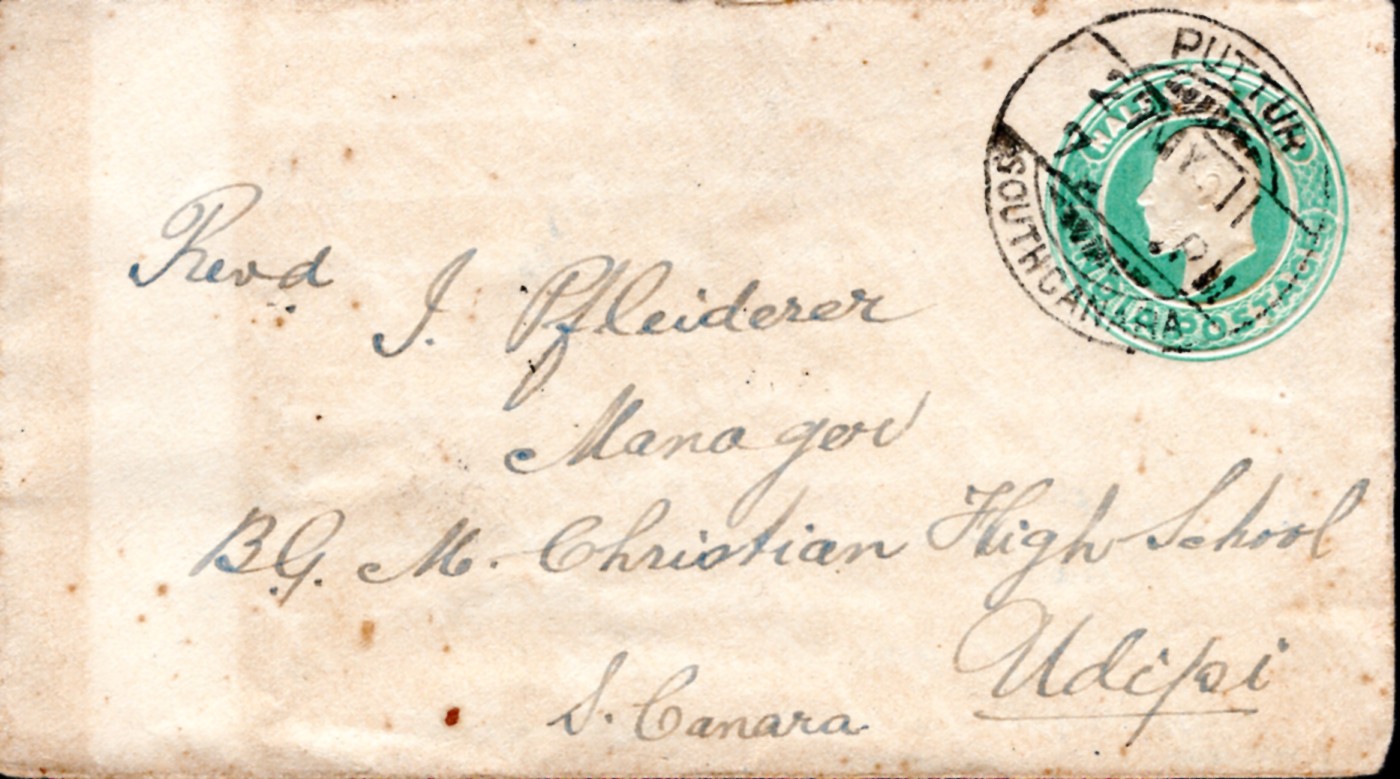 PUTTUR
SOUTH CANARA
HALF
INDIA POSTAGE
Revd
I. Pfleiderer
Manager
B.G. M. Christian High School
Udipi
S. Canara